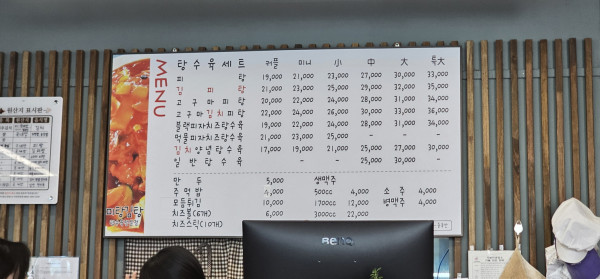 MENU
탕수육세트 커플 미니 小 中 大 특大
피탕 19,000 21,000 23,000 27,000 30,000 33,000
김피탕 20,000 22,000 24,000 28,000 31,000 34,000
고구마피탕 20,000 22,000 24,000 28,000 31,000 34,000
고구마김치피탕 22,000 24,000 26,000 30,000 33,000 36,000
블랙피자치즈탕수육 19,000 22,000 24,000 28,000 31,000 34,000
멋풀피자치즈탕수육 21,000 23,000 25,000 - - -
김치양념탕수육 17,000 19,000 21,000 25,000 27,000 30,000
일반탕수육 - - 25,000 30,000 -
만두 5,000 생맥주
주먹밥 4,000 500cc 4,000 소주 4,000
모듬튀김 10,000 1700cc 12,000 병맥주 4,000
치즈볼(6개) 6,000 3000cc 22,000
치즈스틱(10개)
원산지 표시판
BenQ